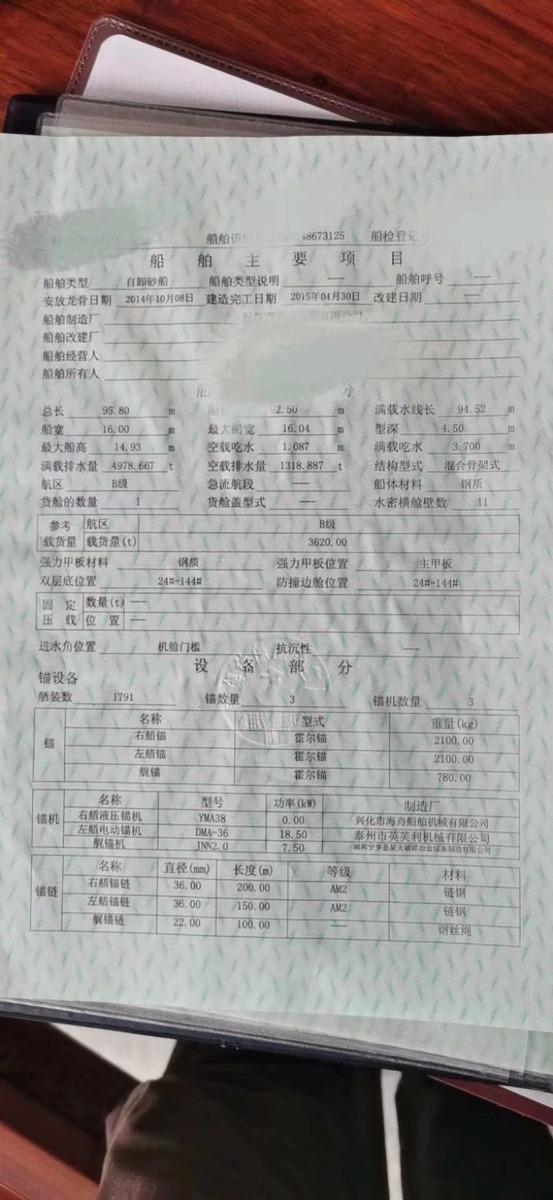 船舶识 8673125 船检登记
船舶主要项目
船舶类型 自卸砂船 船舶类型说明 —— 船舶呼号 ——
安放龙骨日期 2014年10月08日 建造完工日期 2015年04月30日 改建日期 ——
船舶制造厂
船舶改建厂
船舶经营人
船舶所有人
分
总长 95.80 m 2.50 m 满载水线长 94.52 m
船宽 16.00 m 最大船宽 16.04 m 型深 4.50 m
最大船高 14.93 m 空载吃水 1.087 m 满载吃水 3.700 m
满载排水量 4978.667 t 空载排水量 1318.887 t 结构型式 混合骨架式
航区 B级 急流航段 —— 船体材料 钢质
货舱的数量 1 货舱盖型式 —— 水密横舱壁数 11
参考 航区 B级
载货量 载货量(t) 3620.00
强力甲板材料 钢质 强力甲板位置 主甲板
双层底位置 24#-144# 防撞边舱位置 24#-144#
固定 数量(t) ——
压载 位置 ——
进水角位置 机舱门槛 抗沉性 ——
设备部分
锚设备
舾装数 1791 锚数量 3 锚机数量 3
锚 名称 型式 重量(kg)
右艏锚 霍尔锚 2100.00
左艏锚 霍尔锚 2100.00
艉锚 霍尔锚 780.00
锚机 名称 型号 功率(kW) 制造厂
右艏液压锚机 YMA38 0.00 兴化市海舟船舶机械有限公司
左艏电动锚机 DMA-36 18.50 泰州市英芙利机械有限公司
艉锚机 JNN2.0 7.50
锚链 名称 直径(mm) 长度(m) 等级 材料
右艏锚链 36.00 200.00 AM2 链钢
左艏锚链 36.00 150.00 AM2 链钢
艉锚链 22.00 100.00 —— 钢丝绳